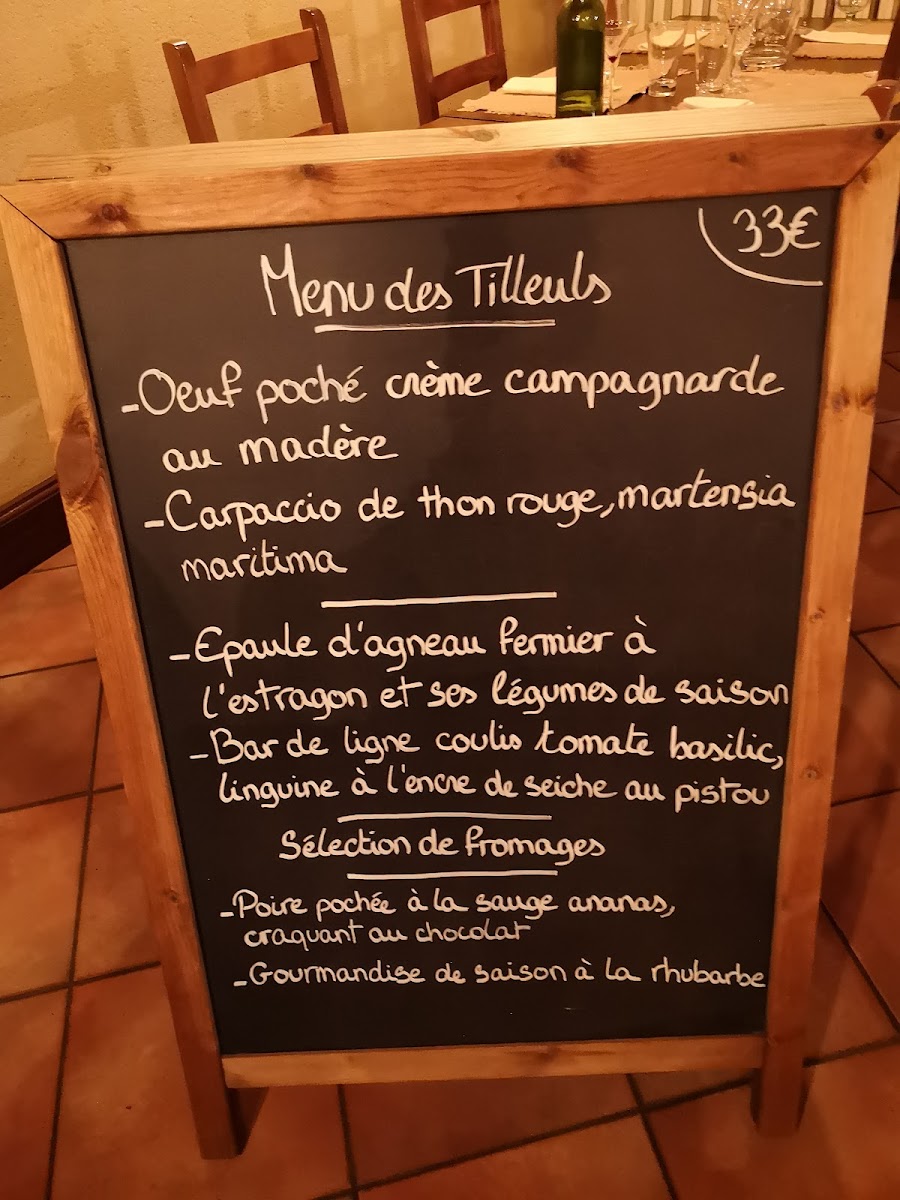 33€
Menu des Tilleuls
-Oeuf poché crème campagnarde
au madère
-Carpaccio de thon rouge, martensia
maritima
-Epaule d'agneau fermier à
l'estragon et ses légumes de saison
-Bar de ligne coulis tomate basilic,
linguine à l'encre de seiche au pistou
Sélection de fromages
-Poire pochée à la sauge ananas,
craquant au chocolat
-Gourmandise de saison à la rhubarbe